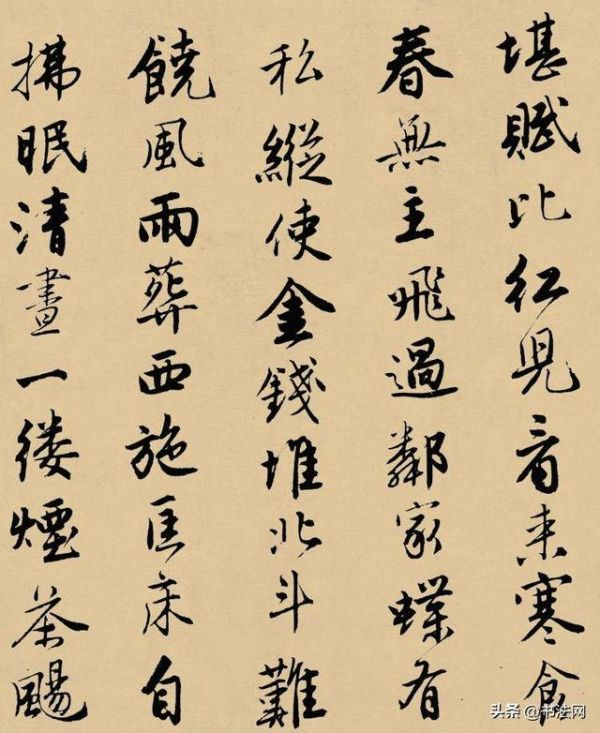 堪賦比紅兒看來寒食
春無主飛過鄰家蝶有
私縱使金錢堆北斗難
饒風雨葬西施匡床自
拂眠清晝一縷煙茶颺
头条 @书法网